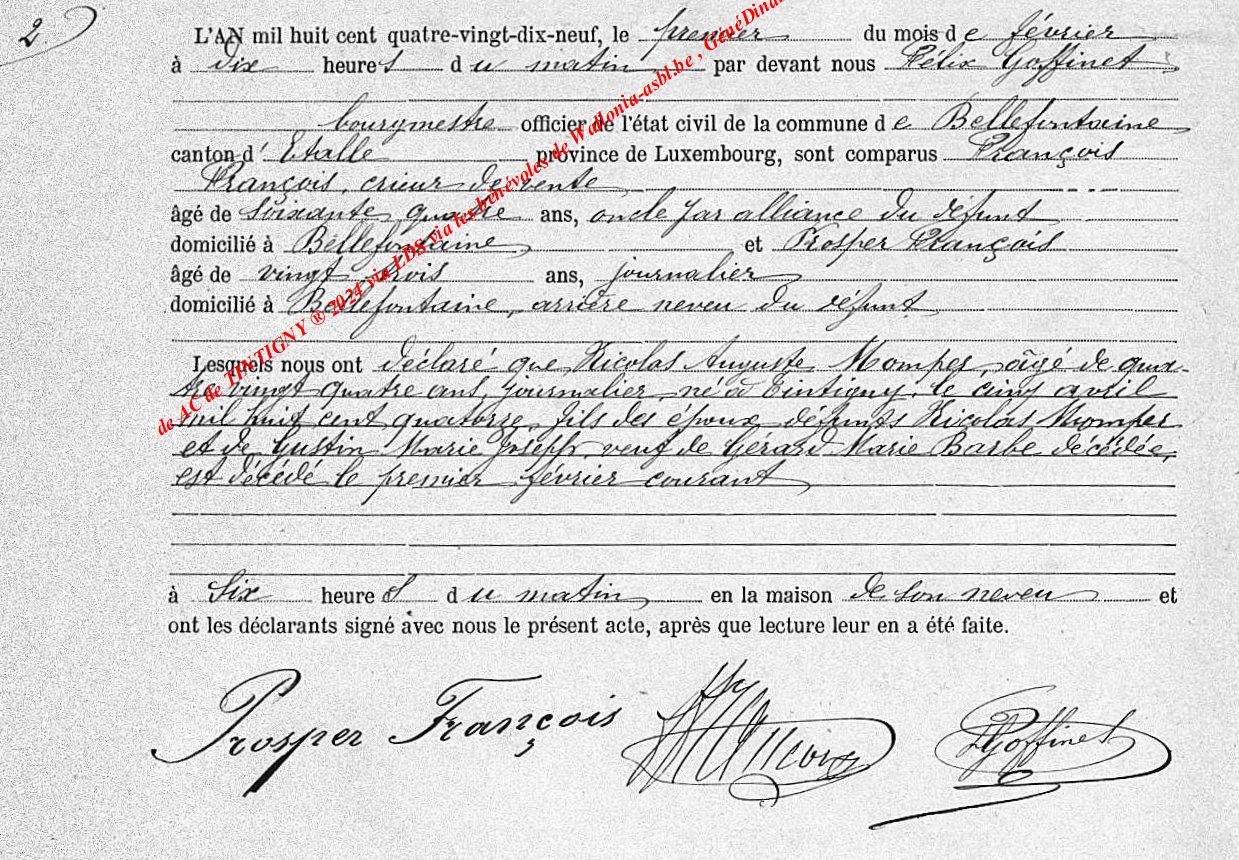 2
L'AN mil huit cent quatre-vingt-dix-neuf, le premier du mois de février
à dix heures du matin par devant nous Félix Goffinet
bourgmestre officier de l'état civil de la commune de Bellefontaine
canton d'Etalle province de Luxembourg, sont comparus François
François, crieur de vente
âgé de soixante quatre ans, oncle par alliance du défunt
domicilié à Bellefontaine et Prosper François
âgé de vingt trois ans, journalier
domicilié à Bellefontaine, arrière neveu du défunt
Lesquels nous ont déclaré que Nicolas Auguste Momper, âgé de qua-
tre vingt quatre ans, journalier né à Tintigny, le cinq avril
mil huit cent quatorze, fils des époux défunts Nicolas Momper
et de Gustin Marie Joseph, veuf de Gérard Marie Barbe décédée,
est décédé le premier février courant
à six heures du matin en la maison de son neveu et
ont les déclarants signé avec nous le présent acte, après que lecture leur en a été faite.
Prosper François
Goffinet
de AC de TINTIGNY ® 2024 via LDS via les bénévoles de Wallonia-asbl.be , GénéDinan